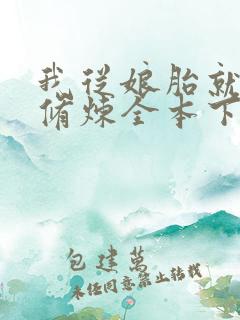 我從娘胎就
脩煉全本下
包建萬
未经同意禁止转载